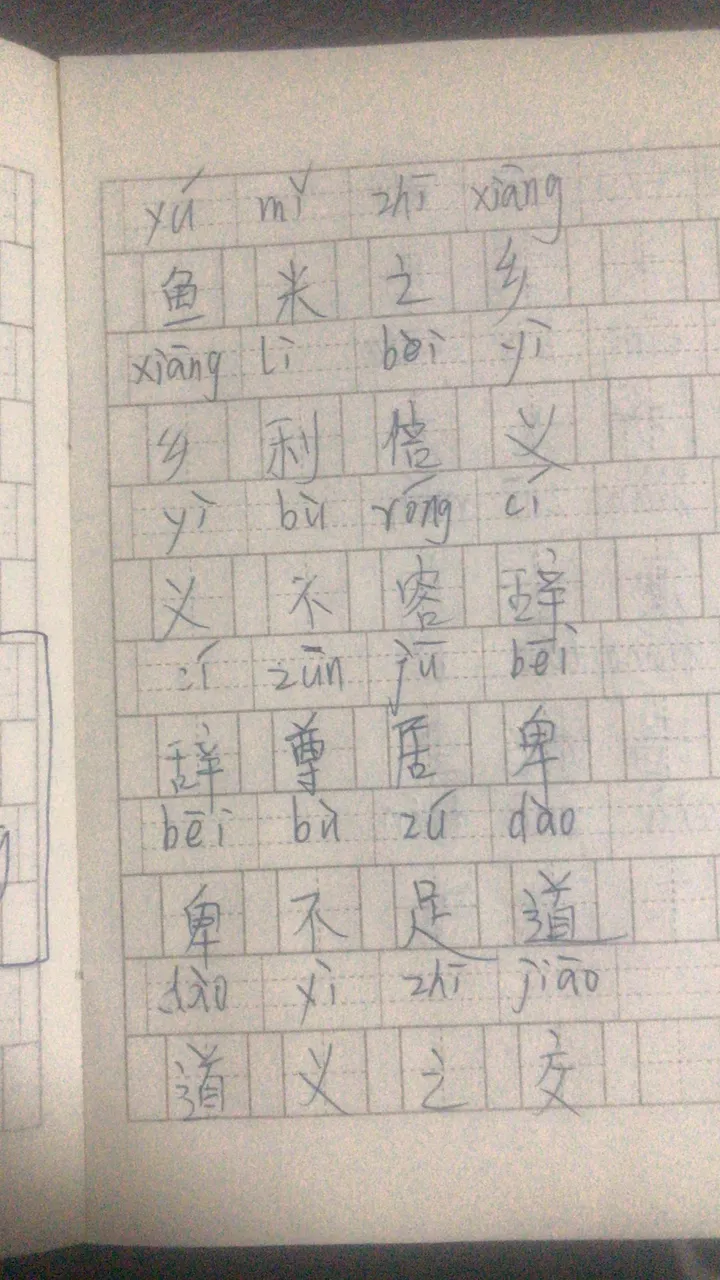 yú mǐ zhī xiāng
鱼米之乡
xiāng lì bèi yì
乡利倍义
yì bù róng cí
义不容辞
cí zūn jū bēi
辞尊居卑
bēi bù zú dào
卑不足道
dào yì zhī jiāo
道义之交